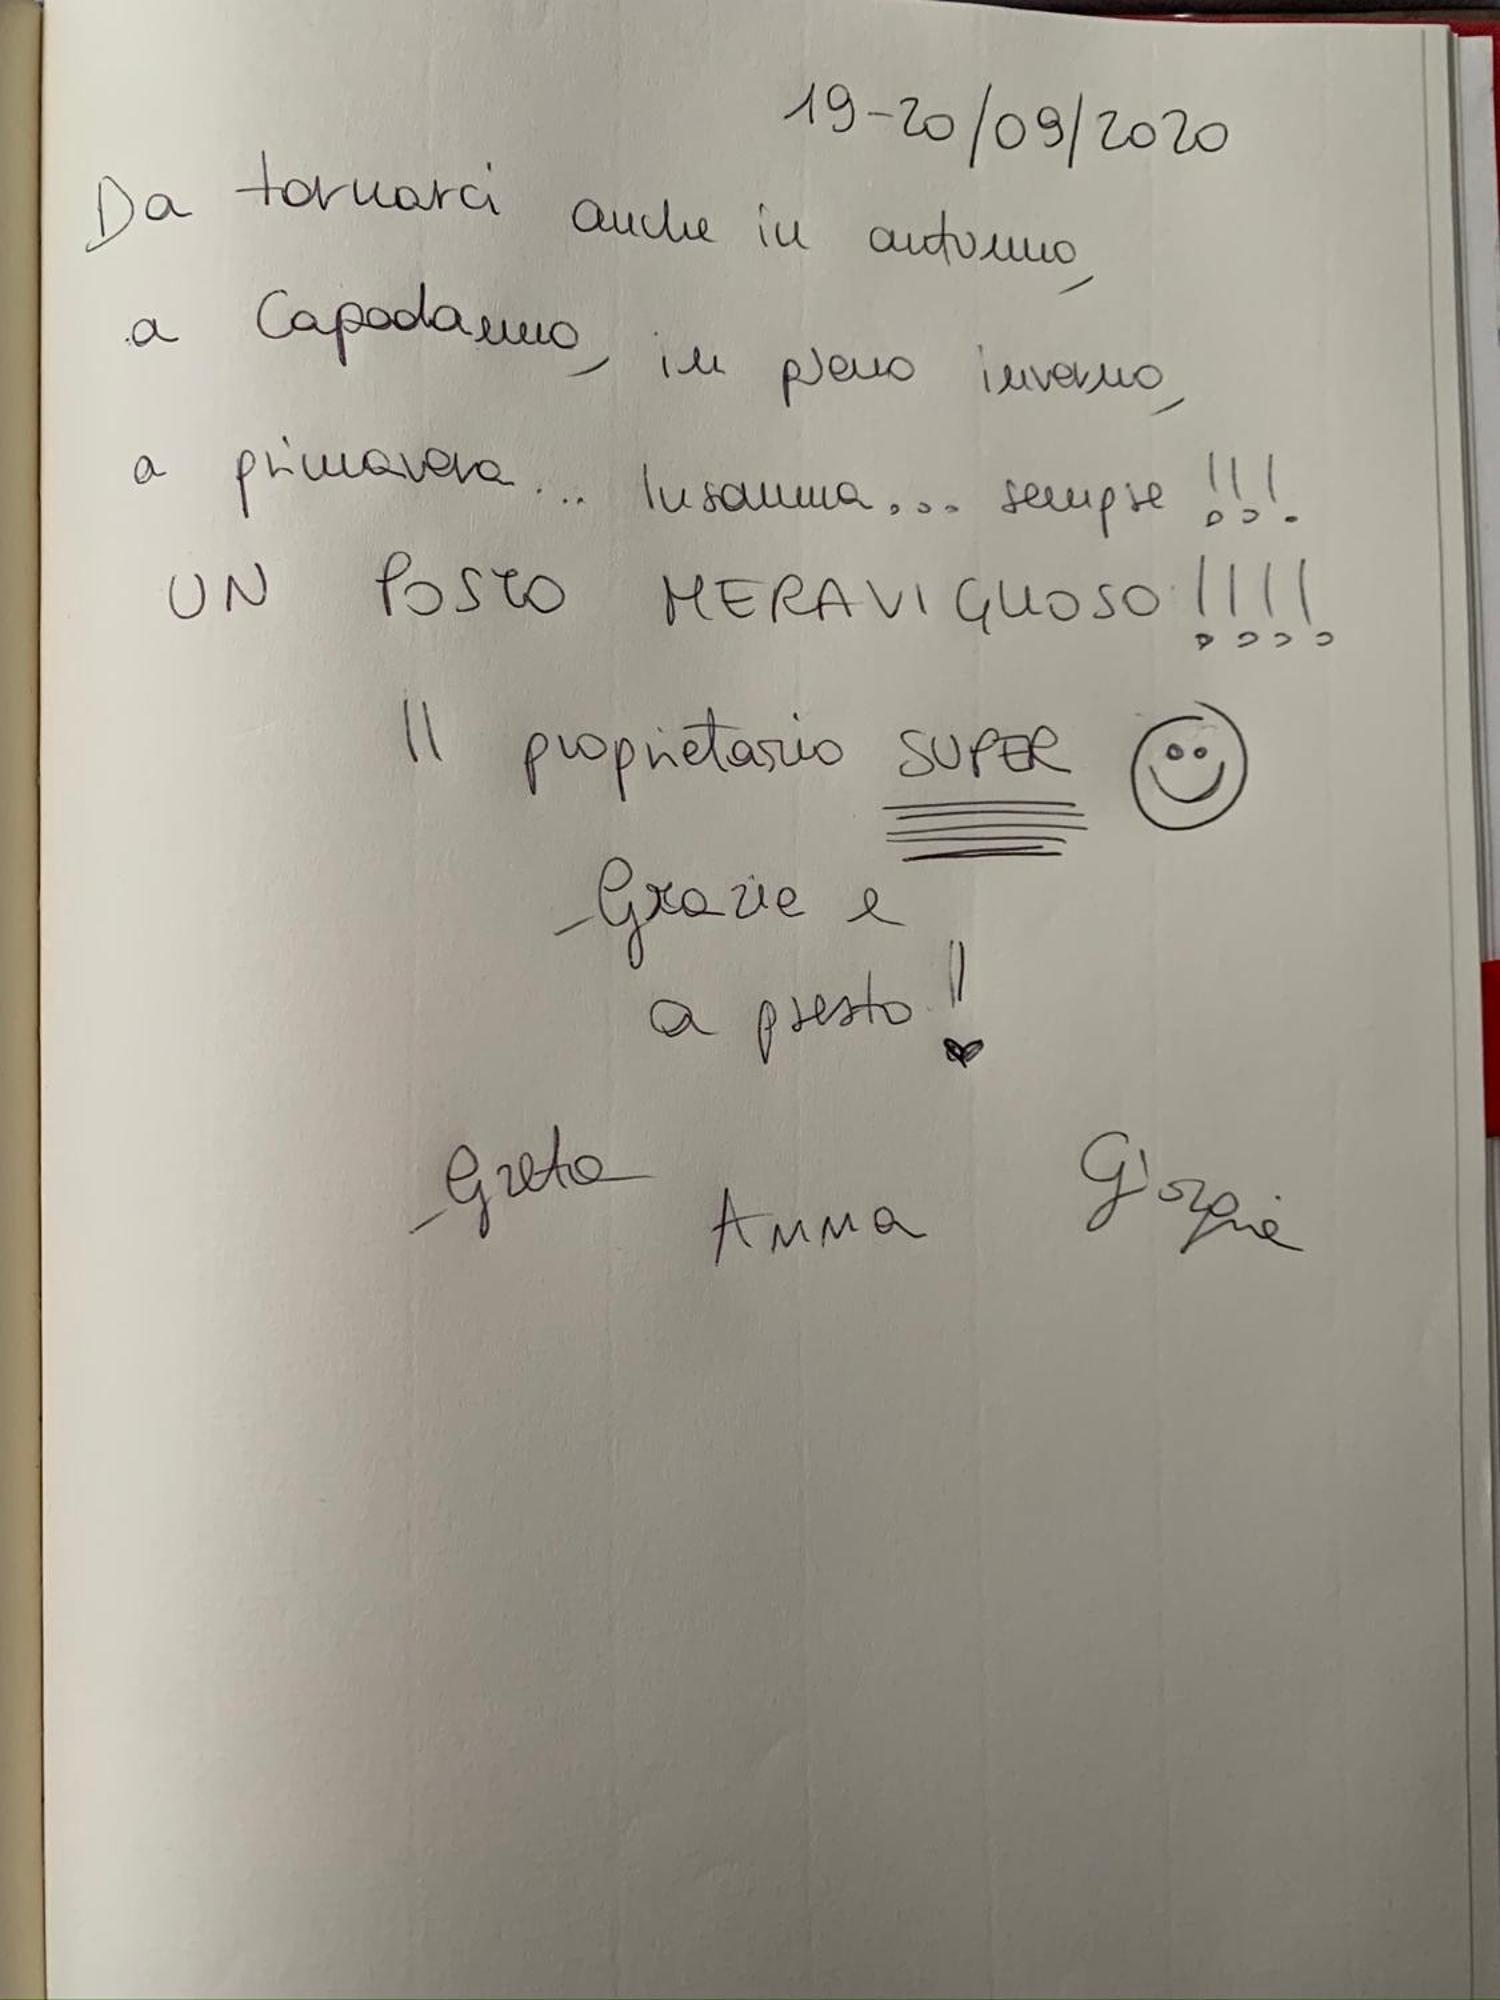 19-20/09/2020
Da tornarci anche in autunno,
a Capodanno, in pieno inverno,
a primavera... Insomma... sempre!!!
UN POSTO MERAVIGLIOSO!!!!
Il proprietario SUPER
Grazie e
a presto!!
Greta Anna Giorgia